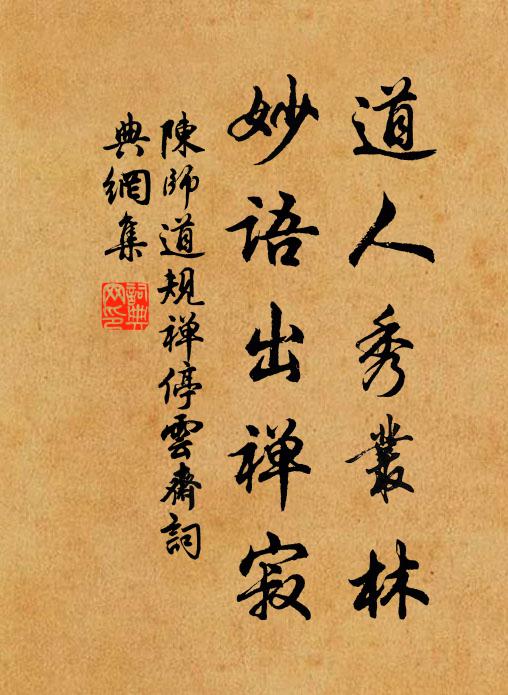 道人秀叢林
妙語出禅寂
陳師道規禅停雲齋詞
典網集
詞典網印